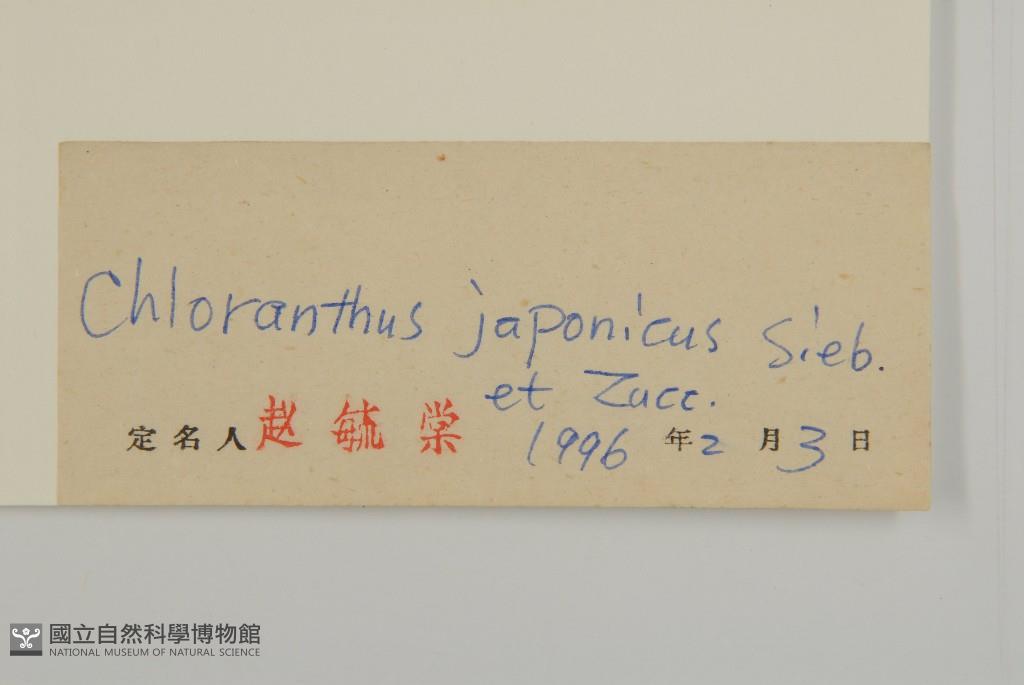 Chloranthus japonicus Sieb.
et Zucc.
定名人 赵毓棠 1996 年 2 月 3 日
國立自然科學博物館
NATIONAL MUSEUM OF NATURAL SCIENCE